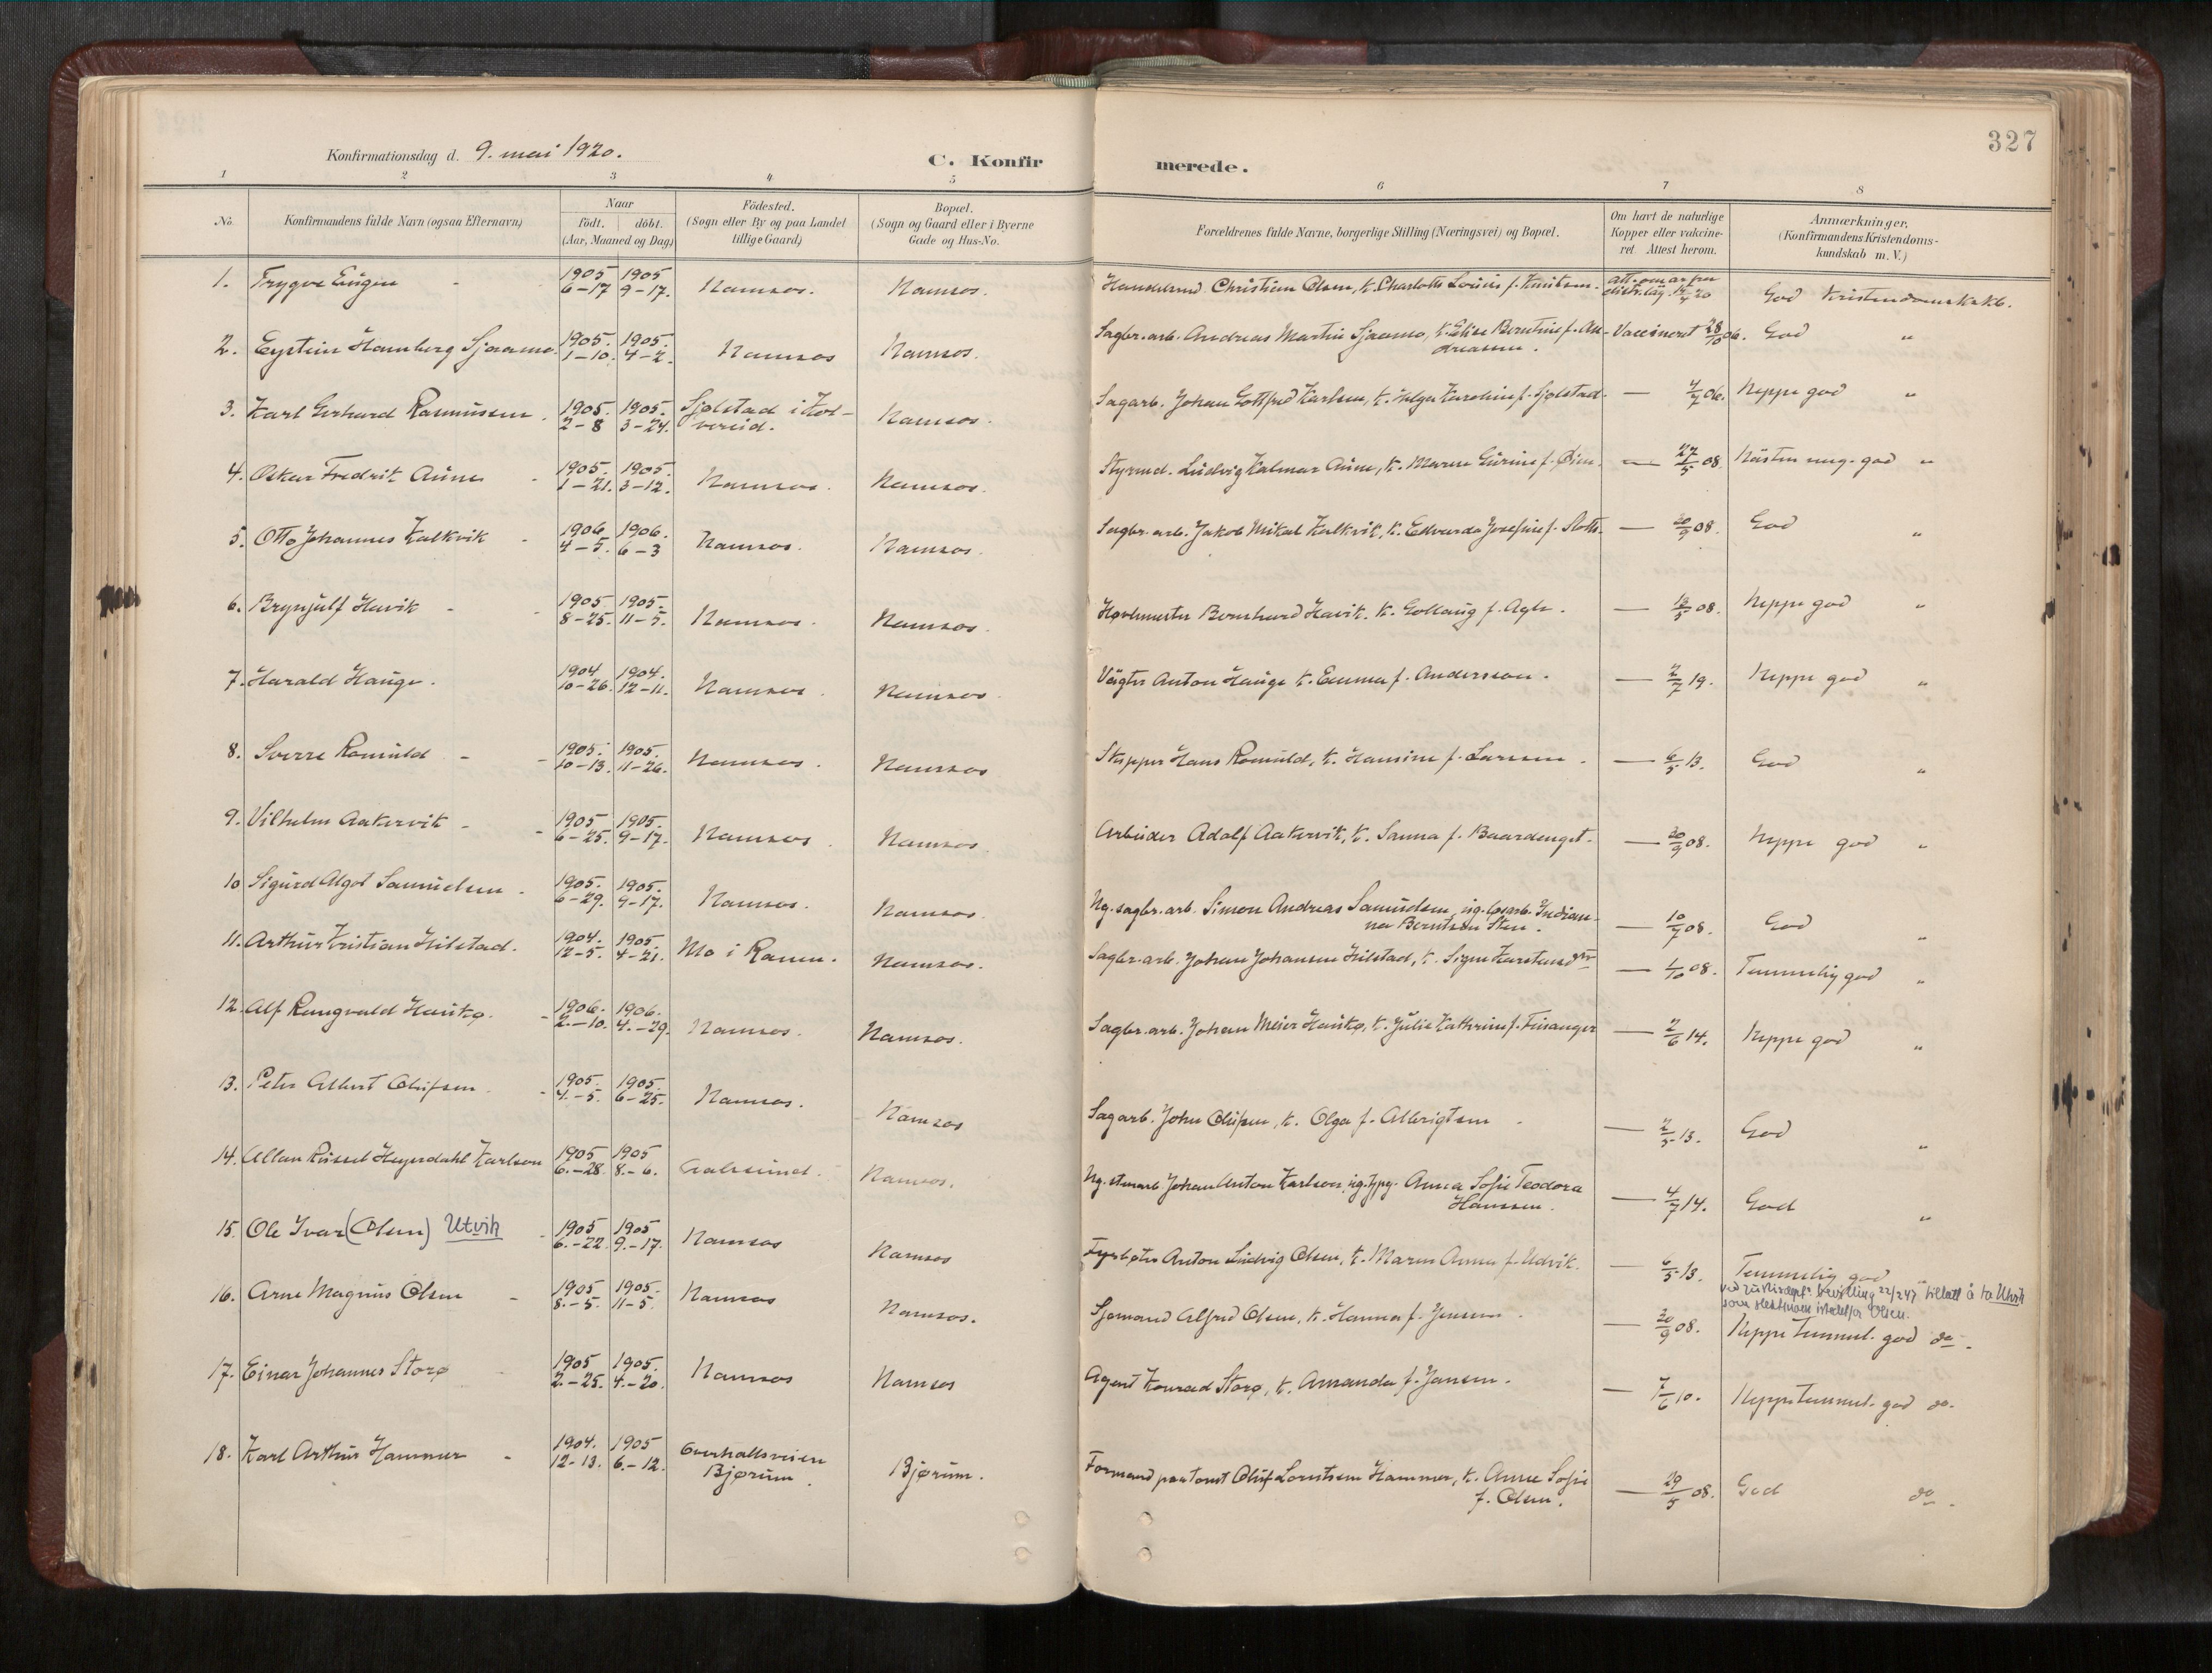 327
Konfirmationsdag d. 9. mai 1920.
C. Konfirmerede.
1 2 3 4 5 6 7 8
No. Konfirmandens fulde Navn (ogsaa Efternavn) Naar født. døbt. (Aar, Maaned og Dag) Födested. (Sogn eller By og paa Landet tillige Gaard) Bopæl. (Sogn og Gaard eller i Byerne Gade og Hus-No. Forældrenes fulde Navne, borgerlige Stilling (Næringsvei) og Bopæl. Om havt de naturlige Kopper eller vakcineret. Attest herom. Anmærkninger. (Konfirmandens Kristendomskundskab m. V.)
1. Trygve Eugen 1905 6-17 1905 9-17. Namsos. Namsos. Christian Olsen, k. Charlotte Lovise f. Knutsen. God Kristendomskskb.
2. Eystein Hamberg Sjaamo 1905. 1-10. 1905. 4-2. Namsos Namsos. Sagbr.arb. Andreas Martin Sjaamo, k. Elise Berntine f. Andreassen. Vaccineret 28/10 06. God "
3. Karl Gerhard Rasmussen. 1905. 2-8 1905. 3-24. Sjølstad i Kolvereid. Namsos. Sagarb. Johan Gottfred Karlsen, k. Helga Karoline f. Sjølstad. — 4/7 06. Neppe god "
4. Oskar Fredrik Aune 1905. 1-21. 1905. 3-12. Namsos. Namsos. Styrmd. Ludvig Halmar Aune, k. Maren Gurine f. — 27/5 08. Næsten mg. god "
5. Otto Johannes Kalkvik 1906 4-5. 1906. 6-3 Namsos. Namsos. Sagbr.arb. Jakob Mikal Kalkvik, k. Edvarda Josefine f. — 20/9 08. God "
6. Brynjulf Havik 1905 8-25. 1905. 11-5. Namsos. Namsos. Høvlmester Bernhard Havik. k. Gollaug f. Agle. — 13/5 08. Neppe god "
7. Harald Hauge. 1904 10-26. 1904. 12-11. Namsos. Namsos. Vægter Anton Hauge k. Emma f. Andersson. — 2/7 19. Neppe god "
8. Sverre Romuld 1905. 10-13. 1905. 11-26. Namsos. Namsos Skipper Hans Romuld, k. Hansine f. Larssen. — 6/5 13. God "
9. Vilhelm Aakervik 1905 6-25. 1905. 9-17. Namsos. Namsos. Arbeider Adolf Aakervik, k. Sanna f. Baardenget. — 20/9 08. Neppe god "
10 Sigurd Algot Samuelsen. 1905. 6-29. 1905. 9-17. Namsos. Namsos. Ug. sagbr.arb. Simon Andreas Samuelsen, ug. Indianna Berntsen Sten. — 10/7 08. God "
11. Arthur Kristian Hilstad. 1904. 12-5. 1905 4-21. Mo i Ranen. Namsos. Sagbr.arb. Johan Johansen Hilstad, k. Signe — 1/10 08. Temmelig god "
12. Alf Rangvald Haukø. 1906. 2.-10. 1906. 4.-29. Namsos. Namsos. Sagbr.arb. Johan Meier Haukø, k. Julie Kathrine f. Finanger — 2/6 14. Neppe god "
13. Peter Albert Olufsen 1905. 4.-5. 1905. 6-25. Namsos. Namsos Sagarb. John Olufsen, k. Olga f. Albrigtsen — 2/5 13. God "
14. Allan Russel Heyerdahl Karlson 1905 6.-28. 1905 8.-6. Aalesund. Namsos. Ug. stenarb Johan Anton Karlson, ug. Anna Sofie Teodora Hanssen. — 4/7 14. God "
15. Ole Ivar (Olsen) Utvik 1905 6.-22. 1905 9.-17. Namsos Namsos Fyrbøter Anton Ludvig Olsen, k. Maren Anna f. Udvik. — 6/5 13. Temmelig god "
ved justisdept. bevilling 22/2 47 tillatt å ta Utvik som slektsnavn istedetfor Olsen.
16. Arne Magnus Olsen 1905 8.-5. 1905. 11-5. Namsos Namsos. Sjømand Alfred Olsen, k. Hanna f. Jensen. — 20/9 08. Neppe Temmel. god do.
17. Einar Johannes Storø 1905 2.-25. 1905. 4.-20. Namsos Namsos Agent Konrad Storø, k. Amanda f. Jansen. — 7/6 10. Neppe temmel. god do.
18. Karl Arthur Hammer 1904. 12-13. 1905 6.-12. Overhallsveien Bjørum. Bjørum. Formand paa tomt Oluf Lorntsen Hammer, k. Anne Sofie f. Olsen. — 29/5 08. God do.